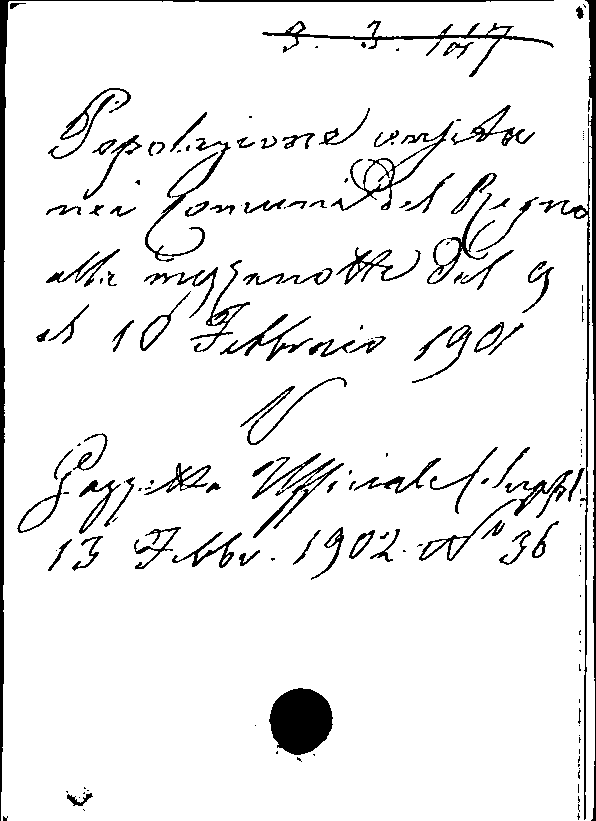 3. 3. 147
Popolazione censita
nei Comuni del Regno
alla mezzanotte dal 9
al 10 Febbraio 1901
V
Gazzetta Ufficiale (Suppl.
13 Febbr. 1902. N° 36